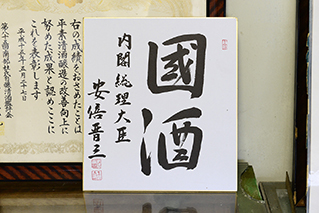 國酒
内閣総理大臣
安倍晋三
右の成績をおさめたことは
平素清酒醸造の改善向上に
努めた成果と認めここに
これを表彰します
平成十五年五月二十七日